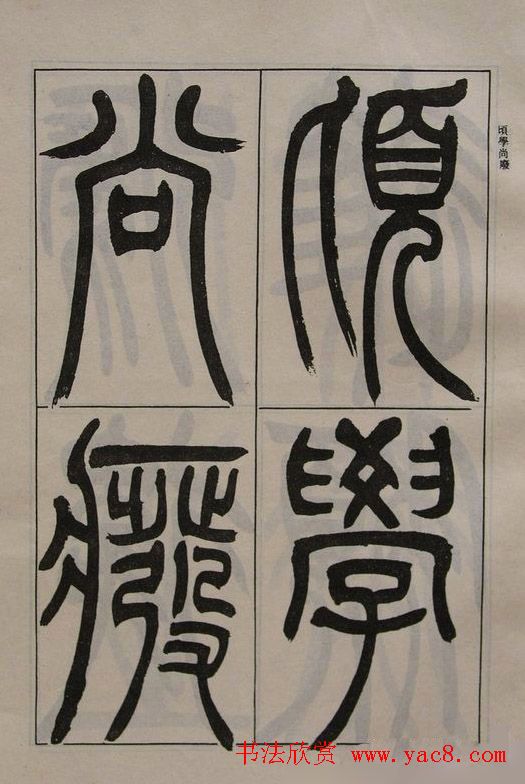 頃學尚癈
頃學
尚癈
书法欣赏 www.yac8.com